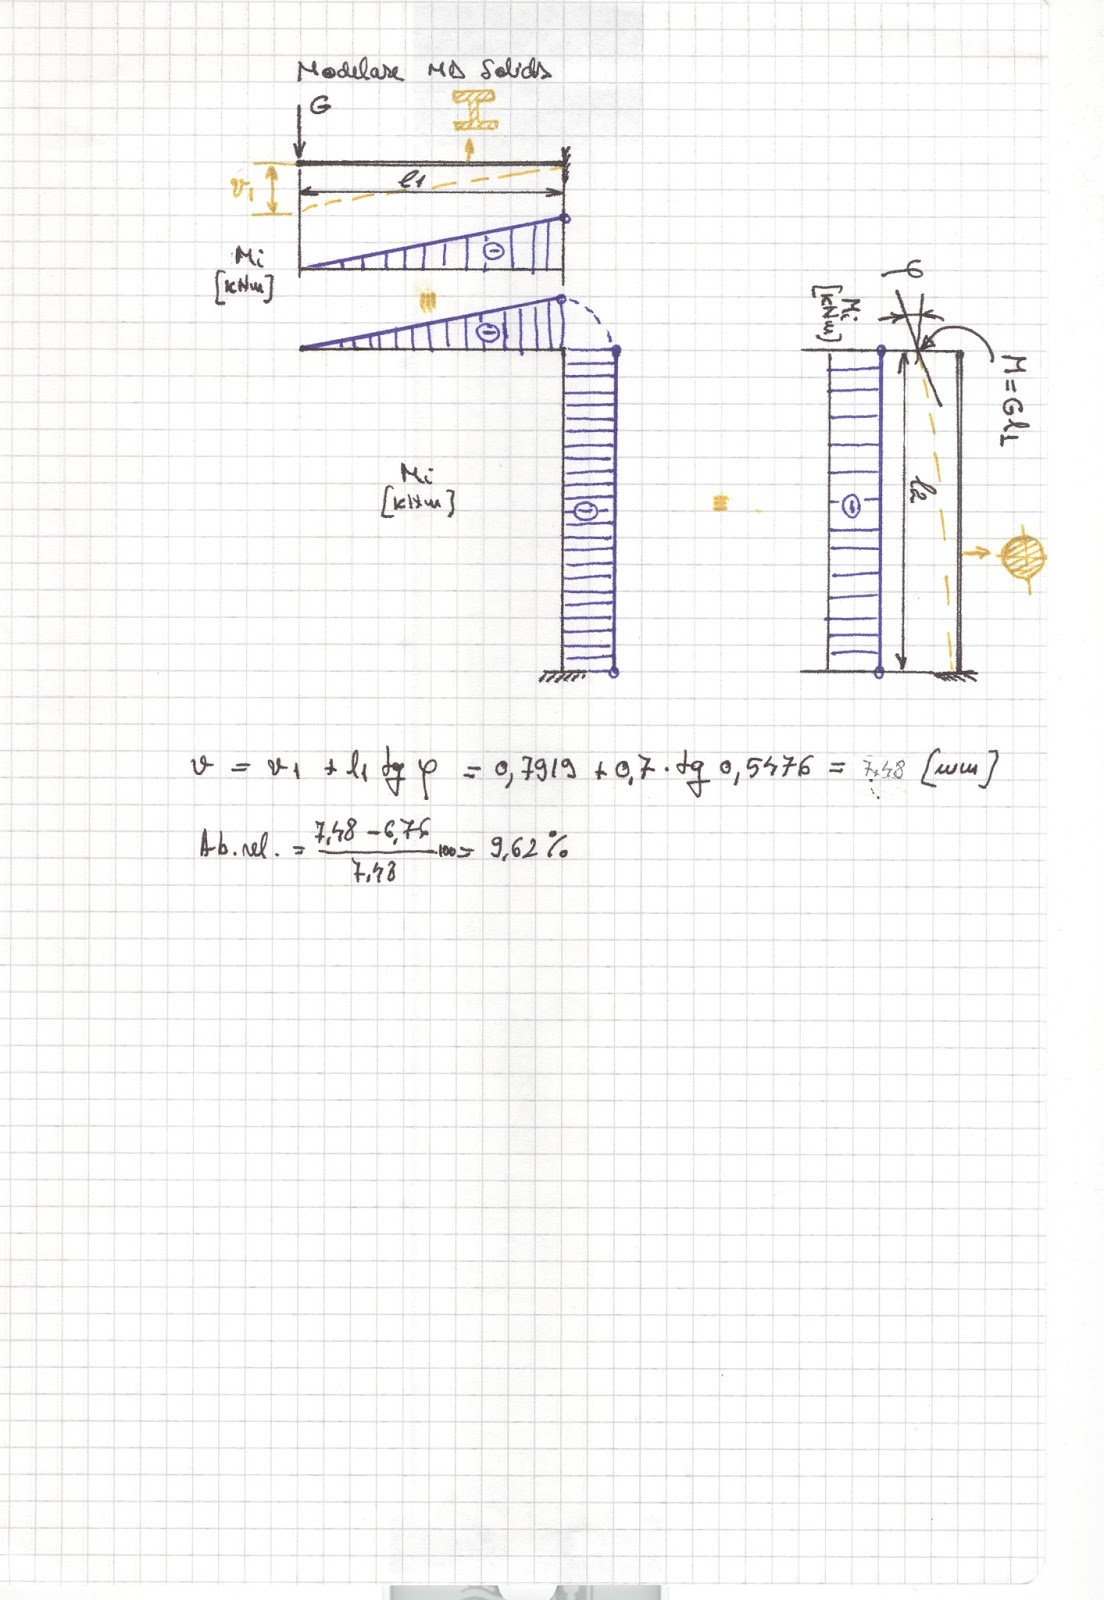 Modelare MD Solids
G
v1
l1
Mi
[kNm]
Mi
[kNm]
Mi
[kNm]
φ
M=Gl1
l2
v = v1 + l1 tg φ = 0,7919 + 0,7 · tg 0,5476 = 7,48 [mm]
Ab.rel. = 7,48 – 6,76 / 7,48 · 100 = 9,62 %